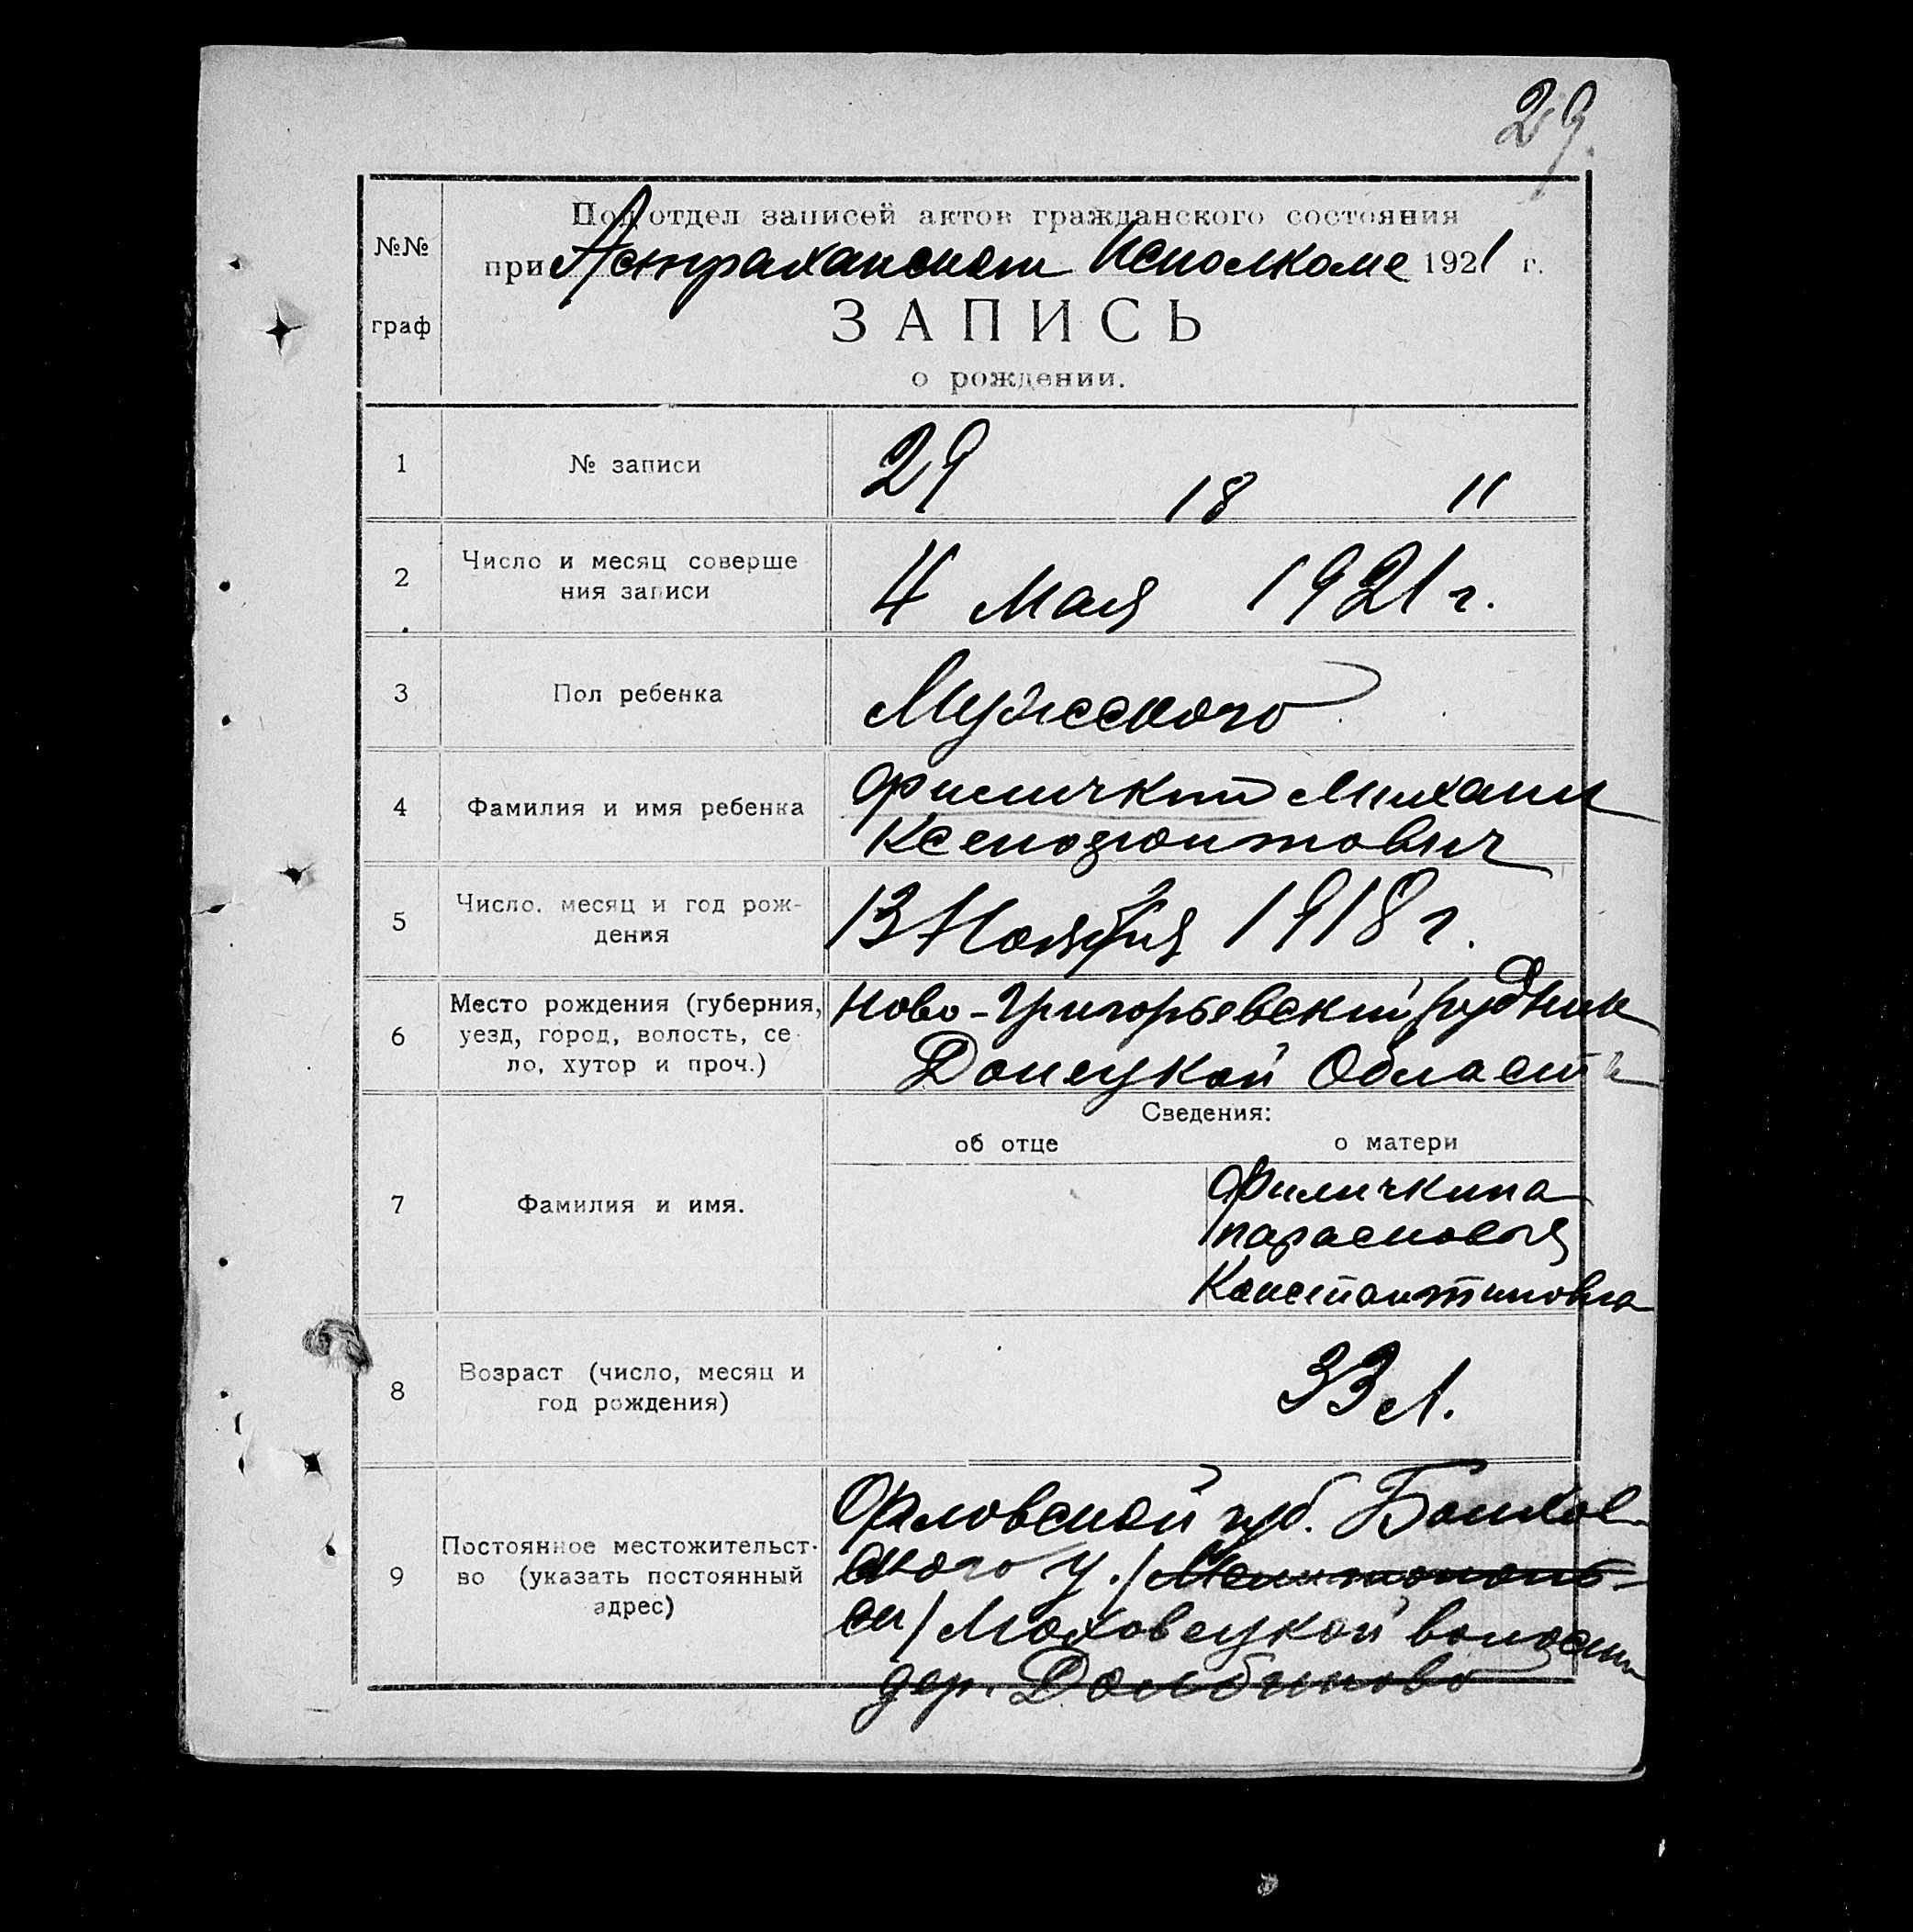 29.
Подотдел записей актов гражданского состояния
№№
при Астраханском Исполкоме 1921 г.
ЗАПИСЬ
граф
о рождении.
1 № записи 29 18 11
2 Число и месяц соверше
ния записи 4 Мая 1921 г.
3 Пол ребенка Мужского
4 Фамилия и имя ребенка Филичкин Михаил
Ксенофонтович
5 Число, месяц и год рож-
дения 13 Ноября 1918 г.
6 Место рождения (губерния,
уезд, город, волость, се-
ло, хутор и проч.)
Ново-Григорьевский рудник
Донецкой Области
Сведения:
об отце о матери
7 Фамилия и имя.
Филичкина
парасковья
Константиновна
8 Возраст (число, месяц и
год рождения)
33 л.
9 Постоянное местожительст-
во (указать постоянный
адрес)
Орловской губ. Болхов-
ского у.
Моховецкой волости
дер. Долбиново